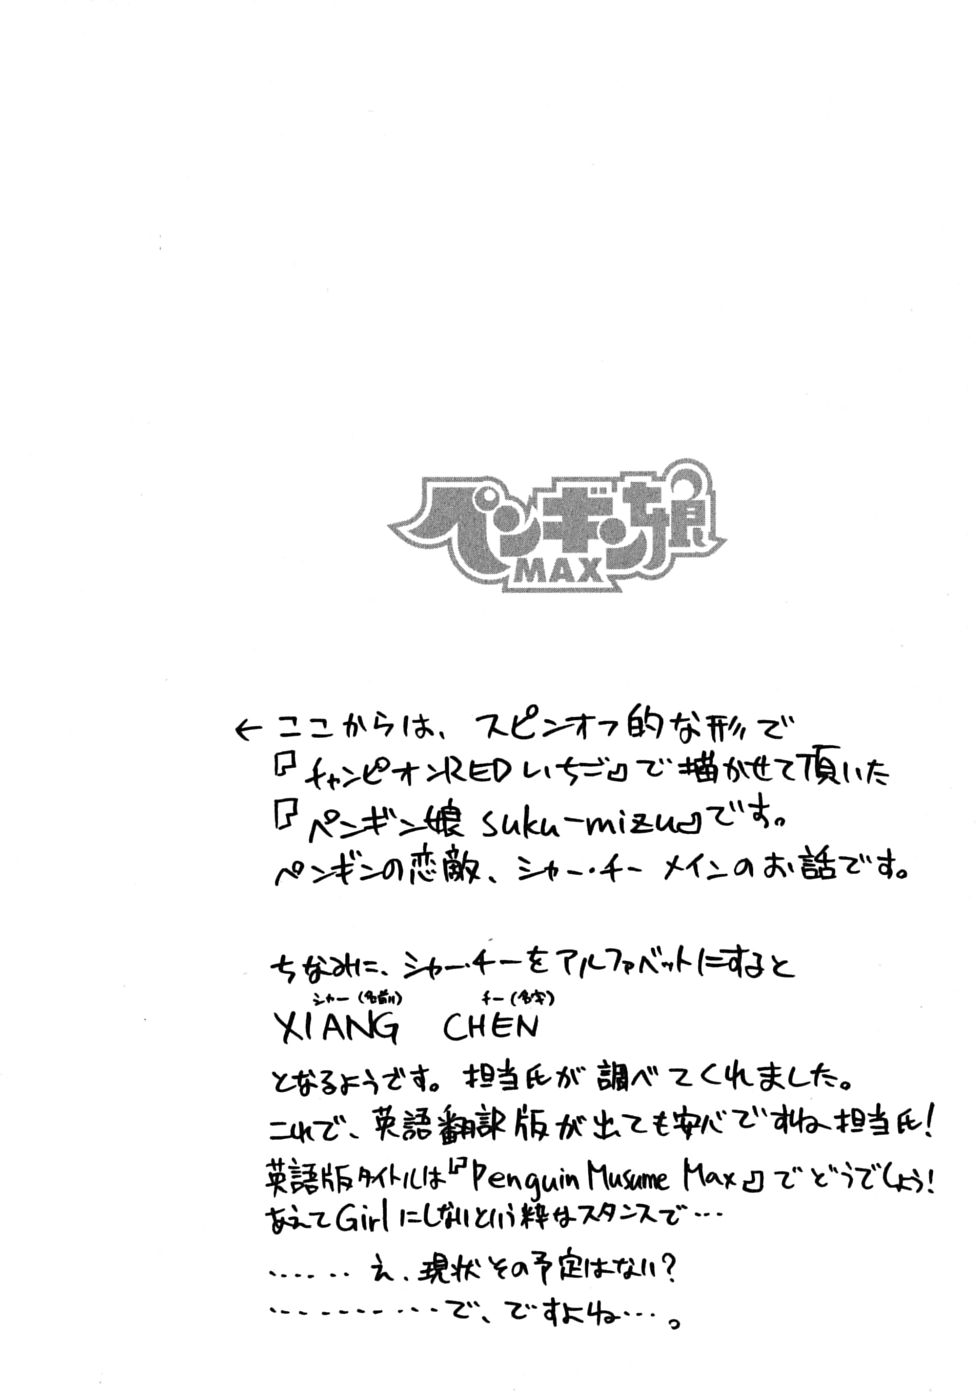 ペンギン娘
MAX
← ここからは、スピンオフ的な形で
『チャンピオンREDいちご』で描かせて頂いた
『ペンギン娘 suku-mizu』です。
ペンギンの恋敵、シャー・チー メインのお話です。
ちなみに、シャー・チーをアルファベットにすると
シャー(名前) チー(名字)
XIANG CHEN
となるようです。担当氏が調べてくれました。
これで、英語翻訳版が出ても安心ですね担当氏!
英語版タイトルは『Penguin Musume Max』でどうでしょう!
あえてGirlにしないという粋なスタンスで…
…… え、現状その予定はない?
………… で、ですよね…。